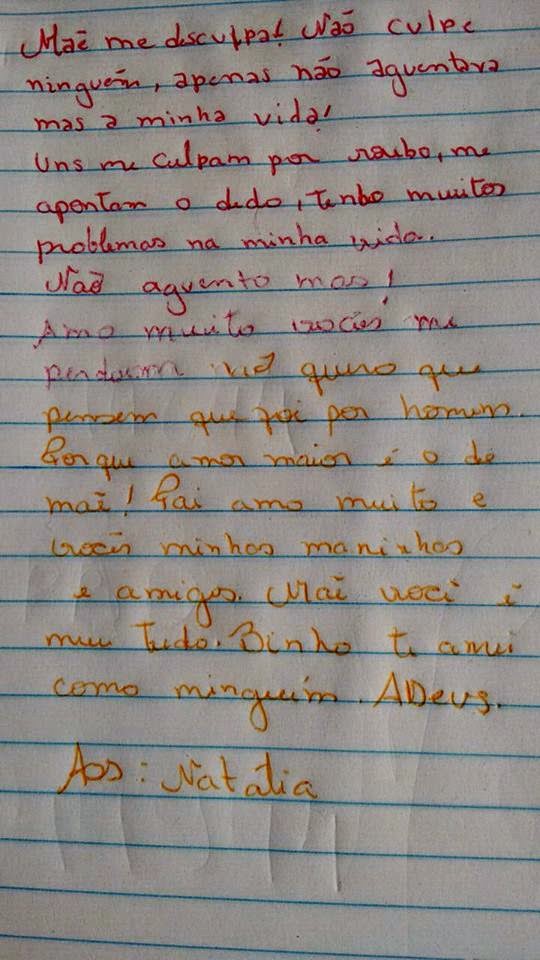 Maẽ me desculpa! Não culpe
ninguém, apenas não aguentava
mas a minha vida!
Uns me culpam por roubo, me
apontam o dedo, tenho muitos
problemas na minha vida.
Não aguento mas!
Amo muito vocês me
perdoem não quero que
pensem que foi por homem.
Porque amor maior é o de
maẽ! Pai amo muito e
vocês minhos maninhos
e amigos. Maẽ você é
meu Tudo. Binho te amei
como ninguém. ADeus.
Ass: Natália